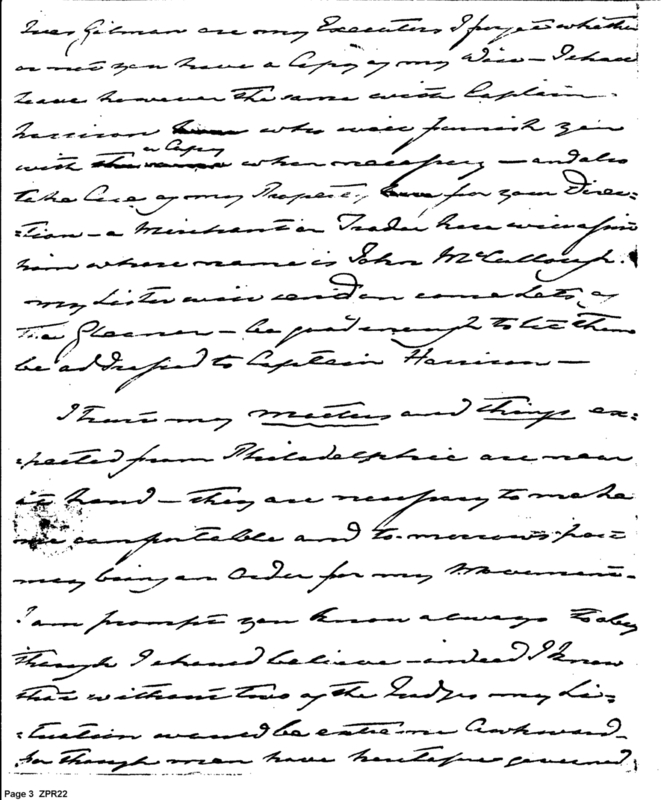 Ives Gilman are my Executors I forget whether
or not you have a Copy of my Will – I shall
leave however the same with Captain
Harrison who will furnish you
a Copy
with when necessary – and also
take Care of my Property, for your Direc=
=tion – a Merchant or Trader here will assist
him whose name is John McCullough.
my Sister will send on some Letters, by
The Gleaner – be good enough to let them
be addressed to Captain Harrison –
I trust my matters and things ex=
=pected from Philadelphia are near
at hand – they are necessary to make
me comfortable and to-morrow's post
may bring an order for my Movement –
I am prompt you know always to obey
though I should believe – indeed I know
that without two of the Judges my Si=
=tuation would be extreme Awkward –
for though men have heretofore governed
Page 3 ZPR22